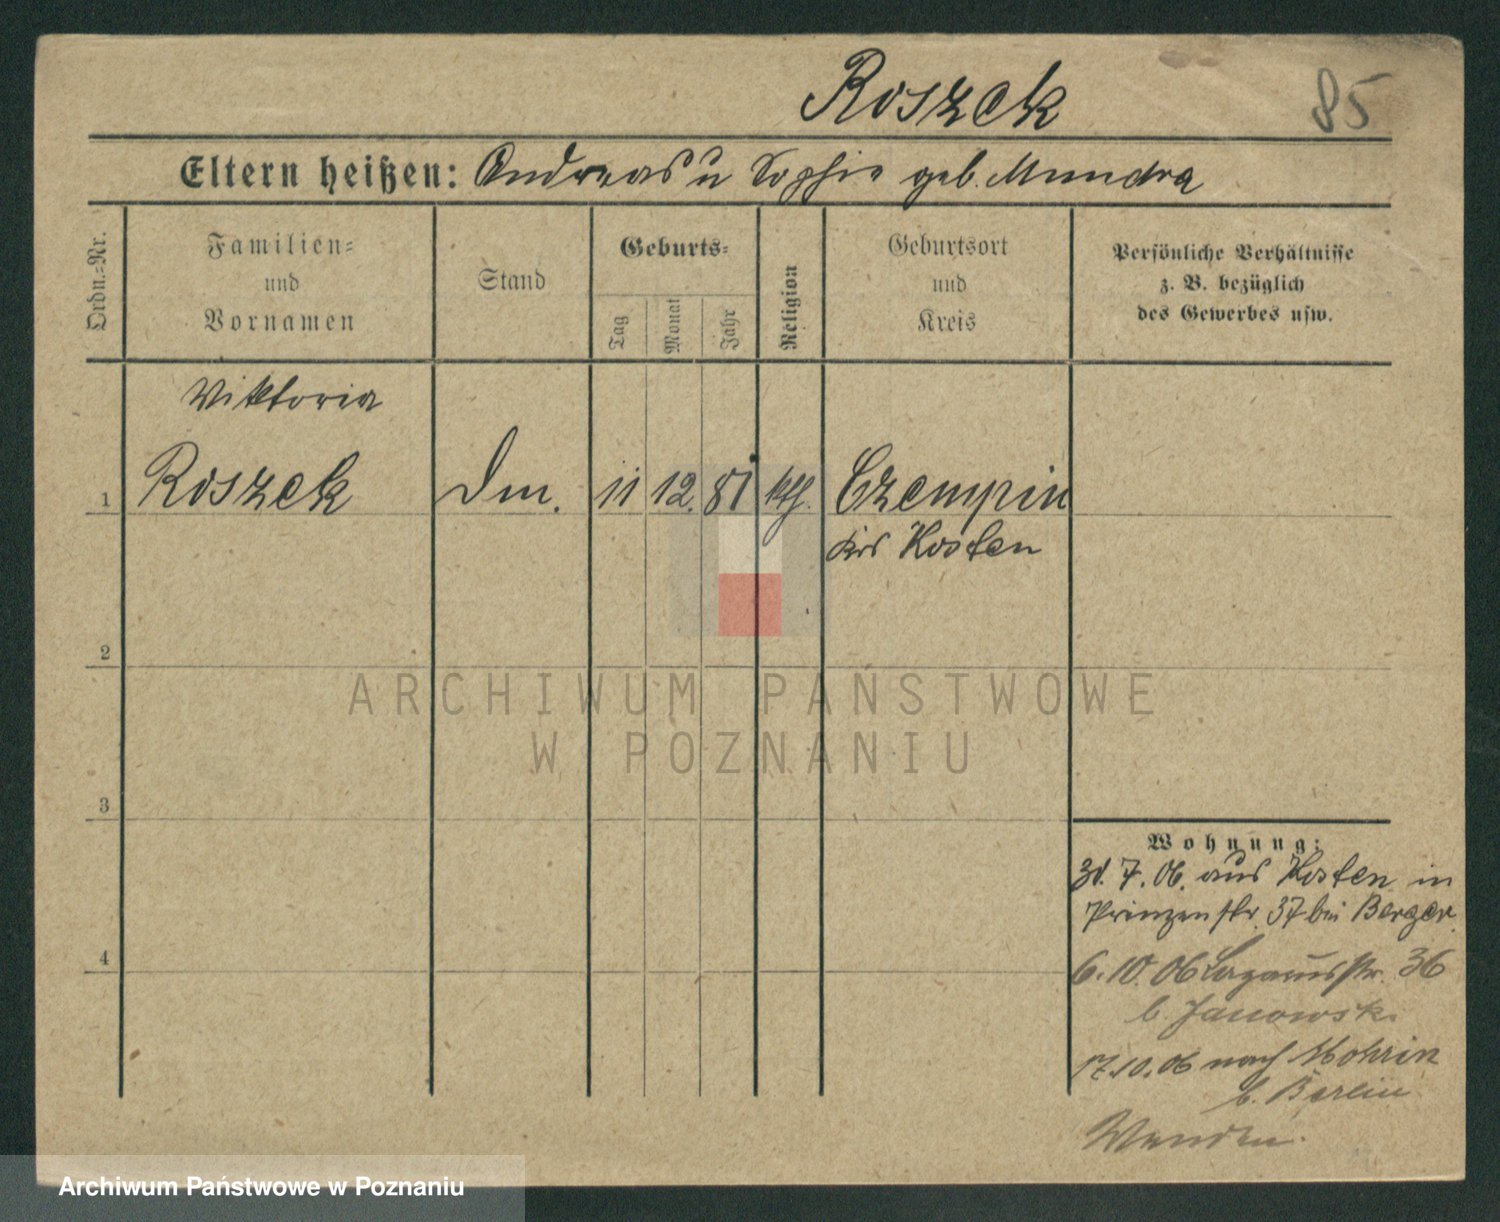 Roszek
85
Eltern heißen: Andreas u Sophie geb. Mundra
Ordn.=Nr.
Familien=
und
Vornamen
Stand
Geburts=
Tag
Monat
Jahr
Religion
Geburtsort
und
Kreis
Persönliche Verhältnisse
z. B. bezüglich
des Gewerbes usw.
Viktoria
1 Roszek Dm. 11 12. 81 kth. Czempin
Krs Kosten
2
3
4
ARCHIWUM PAŃSTWOWE
W POZNANIU
Wohnung:
30. 7. 06. aus Kosten in
Prinzenstr. 37 bei Berger.
6. 10. 06 Lazarusstr. 36
b. Janowski
17. 10. 06 nach Mohrin
b. Berlin
Wenden.
Archiwum Państwowe w Poznaniu